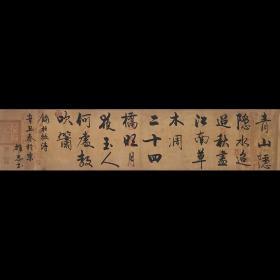 青山隱
隱水迢
迢秋盡
江南草
木凋
二十四
橋明月
夜玉人
何處教
吹簫
錄杜牧詩
辛丑春於